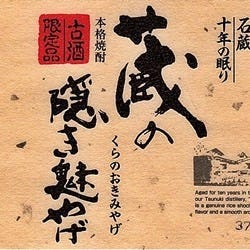 石蔵
十年の眠り
蔵の
隠き魅やげ
くらのおきみやげ
本格焼酎
古酒
限定品
Aged for ten years in t
our Tsunuki distillery,
is a genuine rice shoch
flavor and a smooth an
37